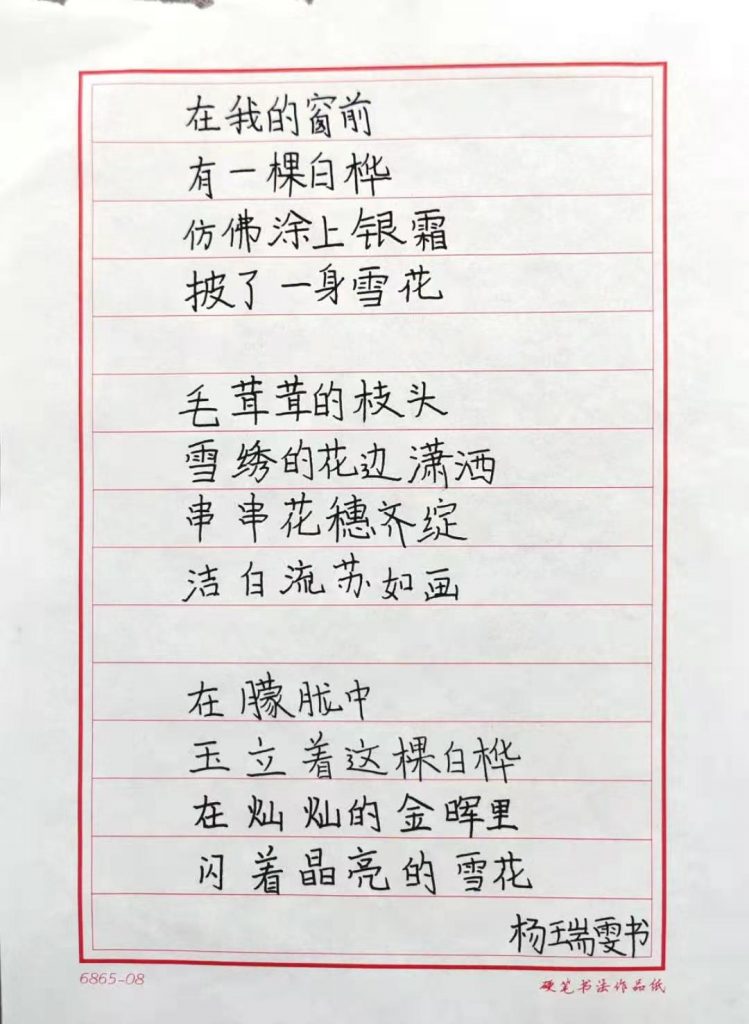 在我的窗前
有一棵白桦
仿佛涂上银霜
披了一身雪花
毛茸茸的枝头
雪绣的花边潇洒
串串花穗齐绽
洁白流苏如画
在朦胧中
玉立着这棵白桦
在灿灿的金晖里
闪着晶亮的雪花
杨瑞雯书
6865-08
硬笔书法作品纸